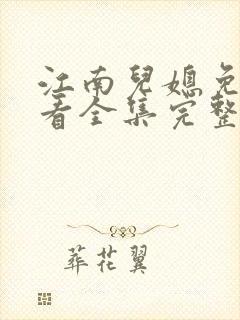 江南兒媳免
看全集完整
葬花翼